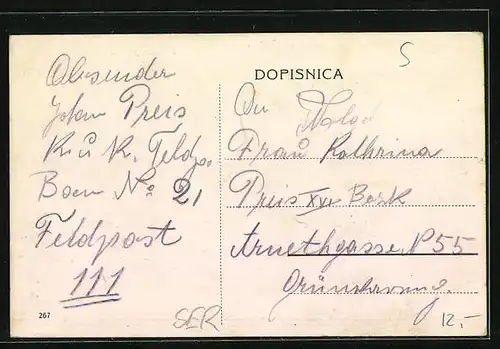 Absender
Johan Preis
K. u. K. Feldp.
Baon No 21
Feldpost
111
267
DOPISNICA
S
An
Frau Kathrina
Preis XVI Bezk
Arnethgasse N 55
SER
12.-